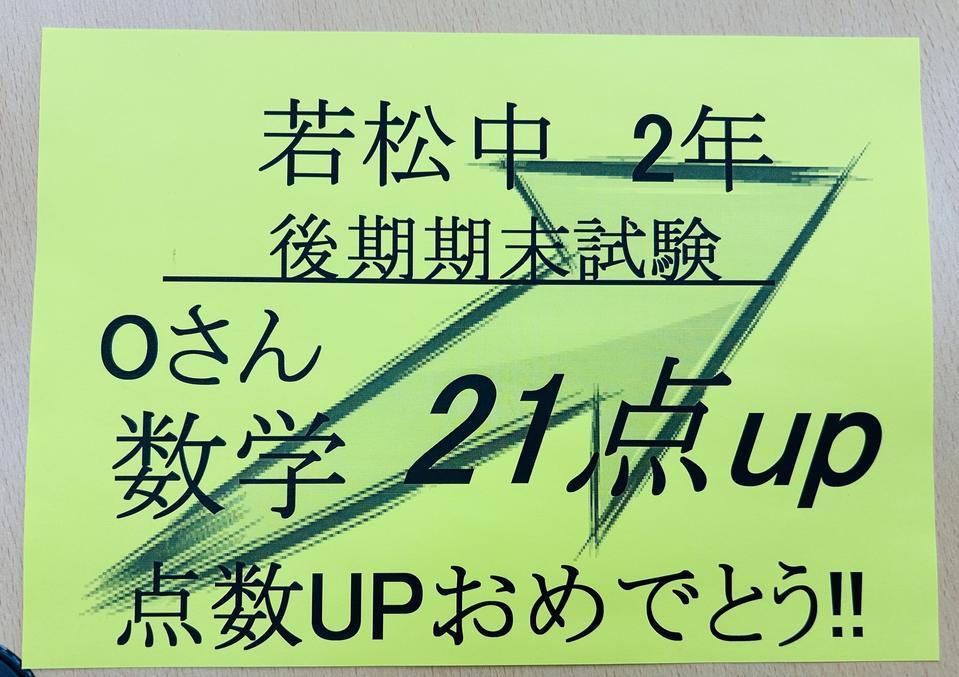 若松中 2年
後期期末試験
Oさん
数学 21点up
点数UPおめでとう!!